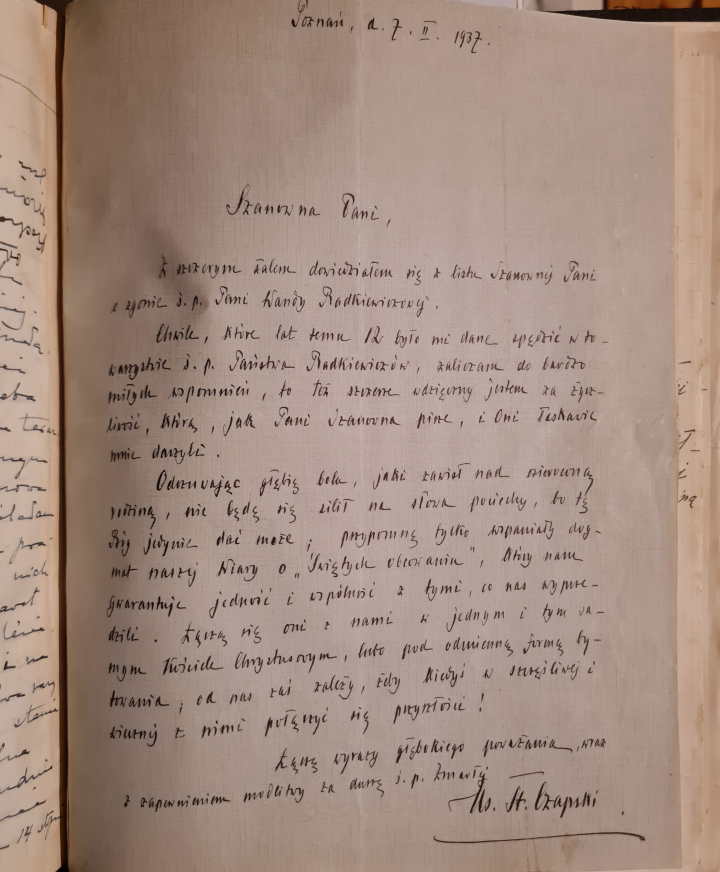 Poznań, d. 7. II. 1937.
Szanowna Pani,
Z szczerym żalem dowiedziałem się z listu Szanownej Pani
o zgonie ś. p. Pani Wandy Radkiewiczowej.
Chwile, które lat temu 12 było mi dane spędzić w to-
warzystwie ś. p. Państwa Radkiewiczów, zaliczam do bardzo
miłych wspomnień, to też szczerze wdzięczny jestem za życz-
liwość, którą, jak Pani Szanowna pisze, i Oni łaskawie
mnie darzyli.
Odczuwając głębię bólu, jaki zawisł nad osieroconą
rodziną, nie będę się silił na słowa pociechy, bo tę
Bóg jedynie dać może; przypomnę tylko wspaniały dog-
mat naszej Wiary o „Świętych obcowaniu", który nam
gwarantuje jedność i wspólność z tymi, co nas wyprze-
dzili. Łączą się oni z nami w jednym i tym sa-
mym Kościele Chrystusowym, lubo pod odmienną formą by-
towania; od nas zaś zależy, żeby kiedyś w szczęśliwej i
wiecznej z nimi połączyć się przyszłości!
Łączę wyrazy głębokiego poważania, wraz
z zapewnieniem modlitwy za duszę ś. p. Zmarłej
Ks. St. Czapski.
teba
nowa
nich
14 stycz